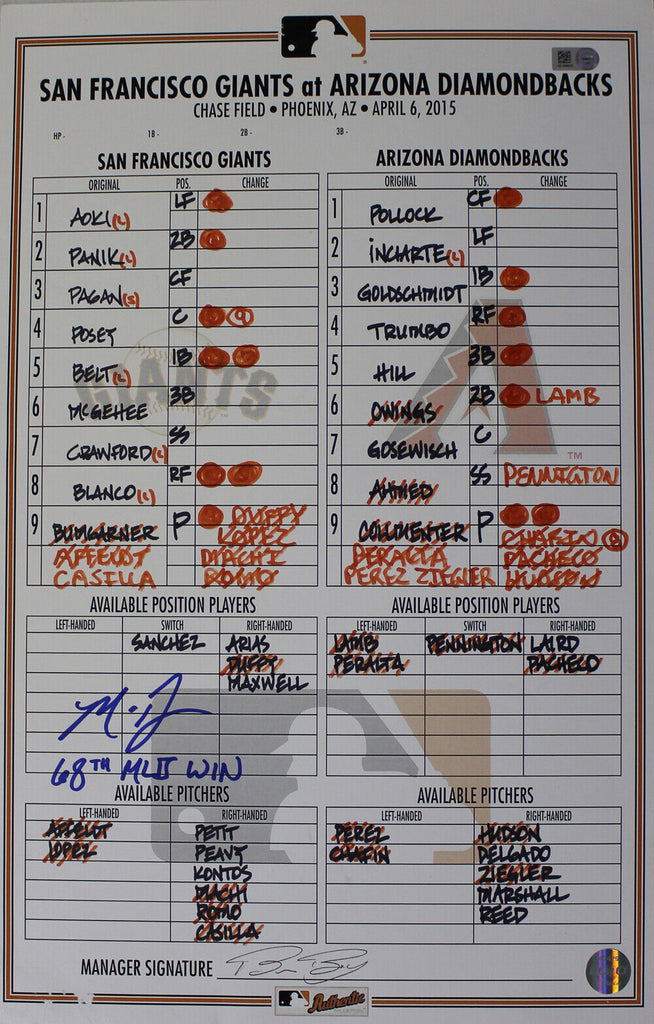 SAN FRANCISCO GIANTS at ARIZONA DIAMONDBACKS
CHASE FIELD • PHOENIX, AZ • APRIL 6, 2015
HP - 1B - 2B - 3B -
SAN FRANCISCO GIANTS
ORIGINAL POS. CHANGE
1 AOKI (L) LF
2 PANIK (L) 2B
3 PAGAN (S) CF
4 POSEY C 9
5 BELT (L) 1B
6 MCGEHEE 3B
7 CRAWFORD (L) SS
8 BLANCO (L) RF
9 BUMGARNER P DUFFY
LOPEZ
AFFELDT MACHI
CASILLA ROMO
ARIZONA DIAMONDBACKS
ORIGINAL POS. CHANGE
1 POLLOCK CF
2 INCIARTE (L) LF
3 GOLDSCHMIDT 1B
4 TRUMBO RF
5 HILL 3B
6 OWINGS 2B LAMB
7 GOSEWISCH C
8 AHMED SS PENNINGTON
9 COLLMENTER P CHAFIN
PERALTA PACHECO
PEREZ ZIEGLER HUDSON
AVAILABLE POSITION PLAYERS
LEFT-HANDED SWITCH RIGHT-HANDED
SANCHEZ ARIAS
DUFFY
MAXWELL
68TH MLB WIN
AVAILABLE POSITION PLAYERS
LEFT-HANDED SWITCH RIGHT-HANDED
LAMB PENNINGTON LAIRD
PERALTA PACHECO
AVAILABLE PITCHERS
LEFT-HANDED RIGHT-HANDED
AFFELDT PETIT
LOPEZ PEAVY
KONTOS
MACHI
ROMO
CASILLA
AVAILABLE PITCHERS
LEFT-HANDED RIGHT-HANDED
PEREZ HUDSON
CHAFIN DELGADO
ZIEGLER
MARSHALL
REED
MANAGER SIGNATURE
GIANTS
TM
Authentic